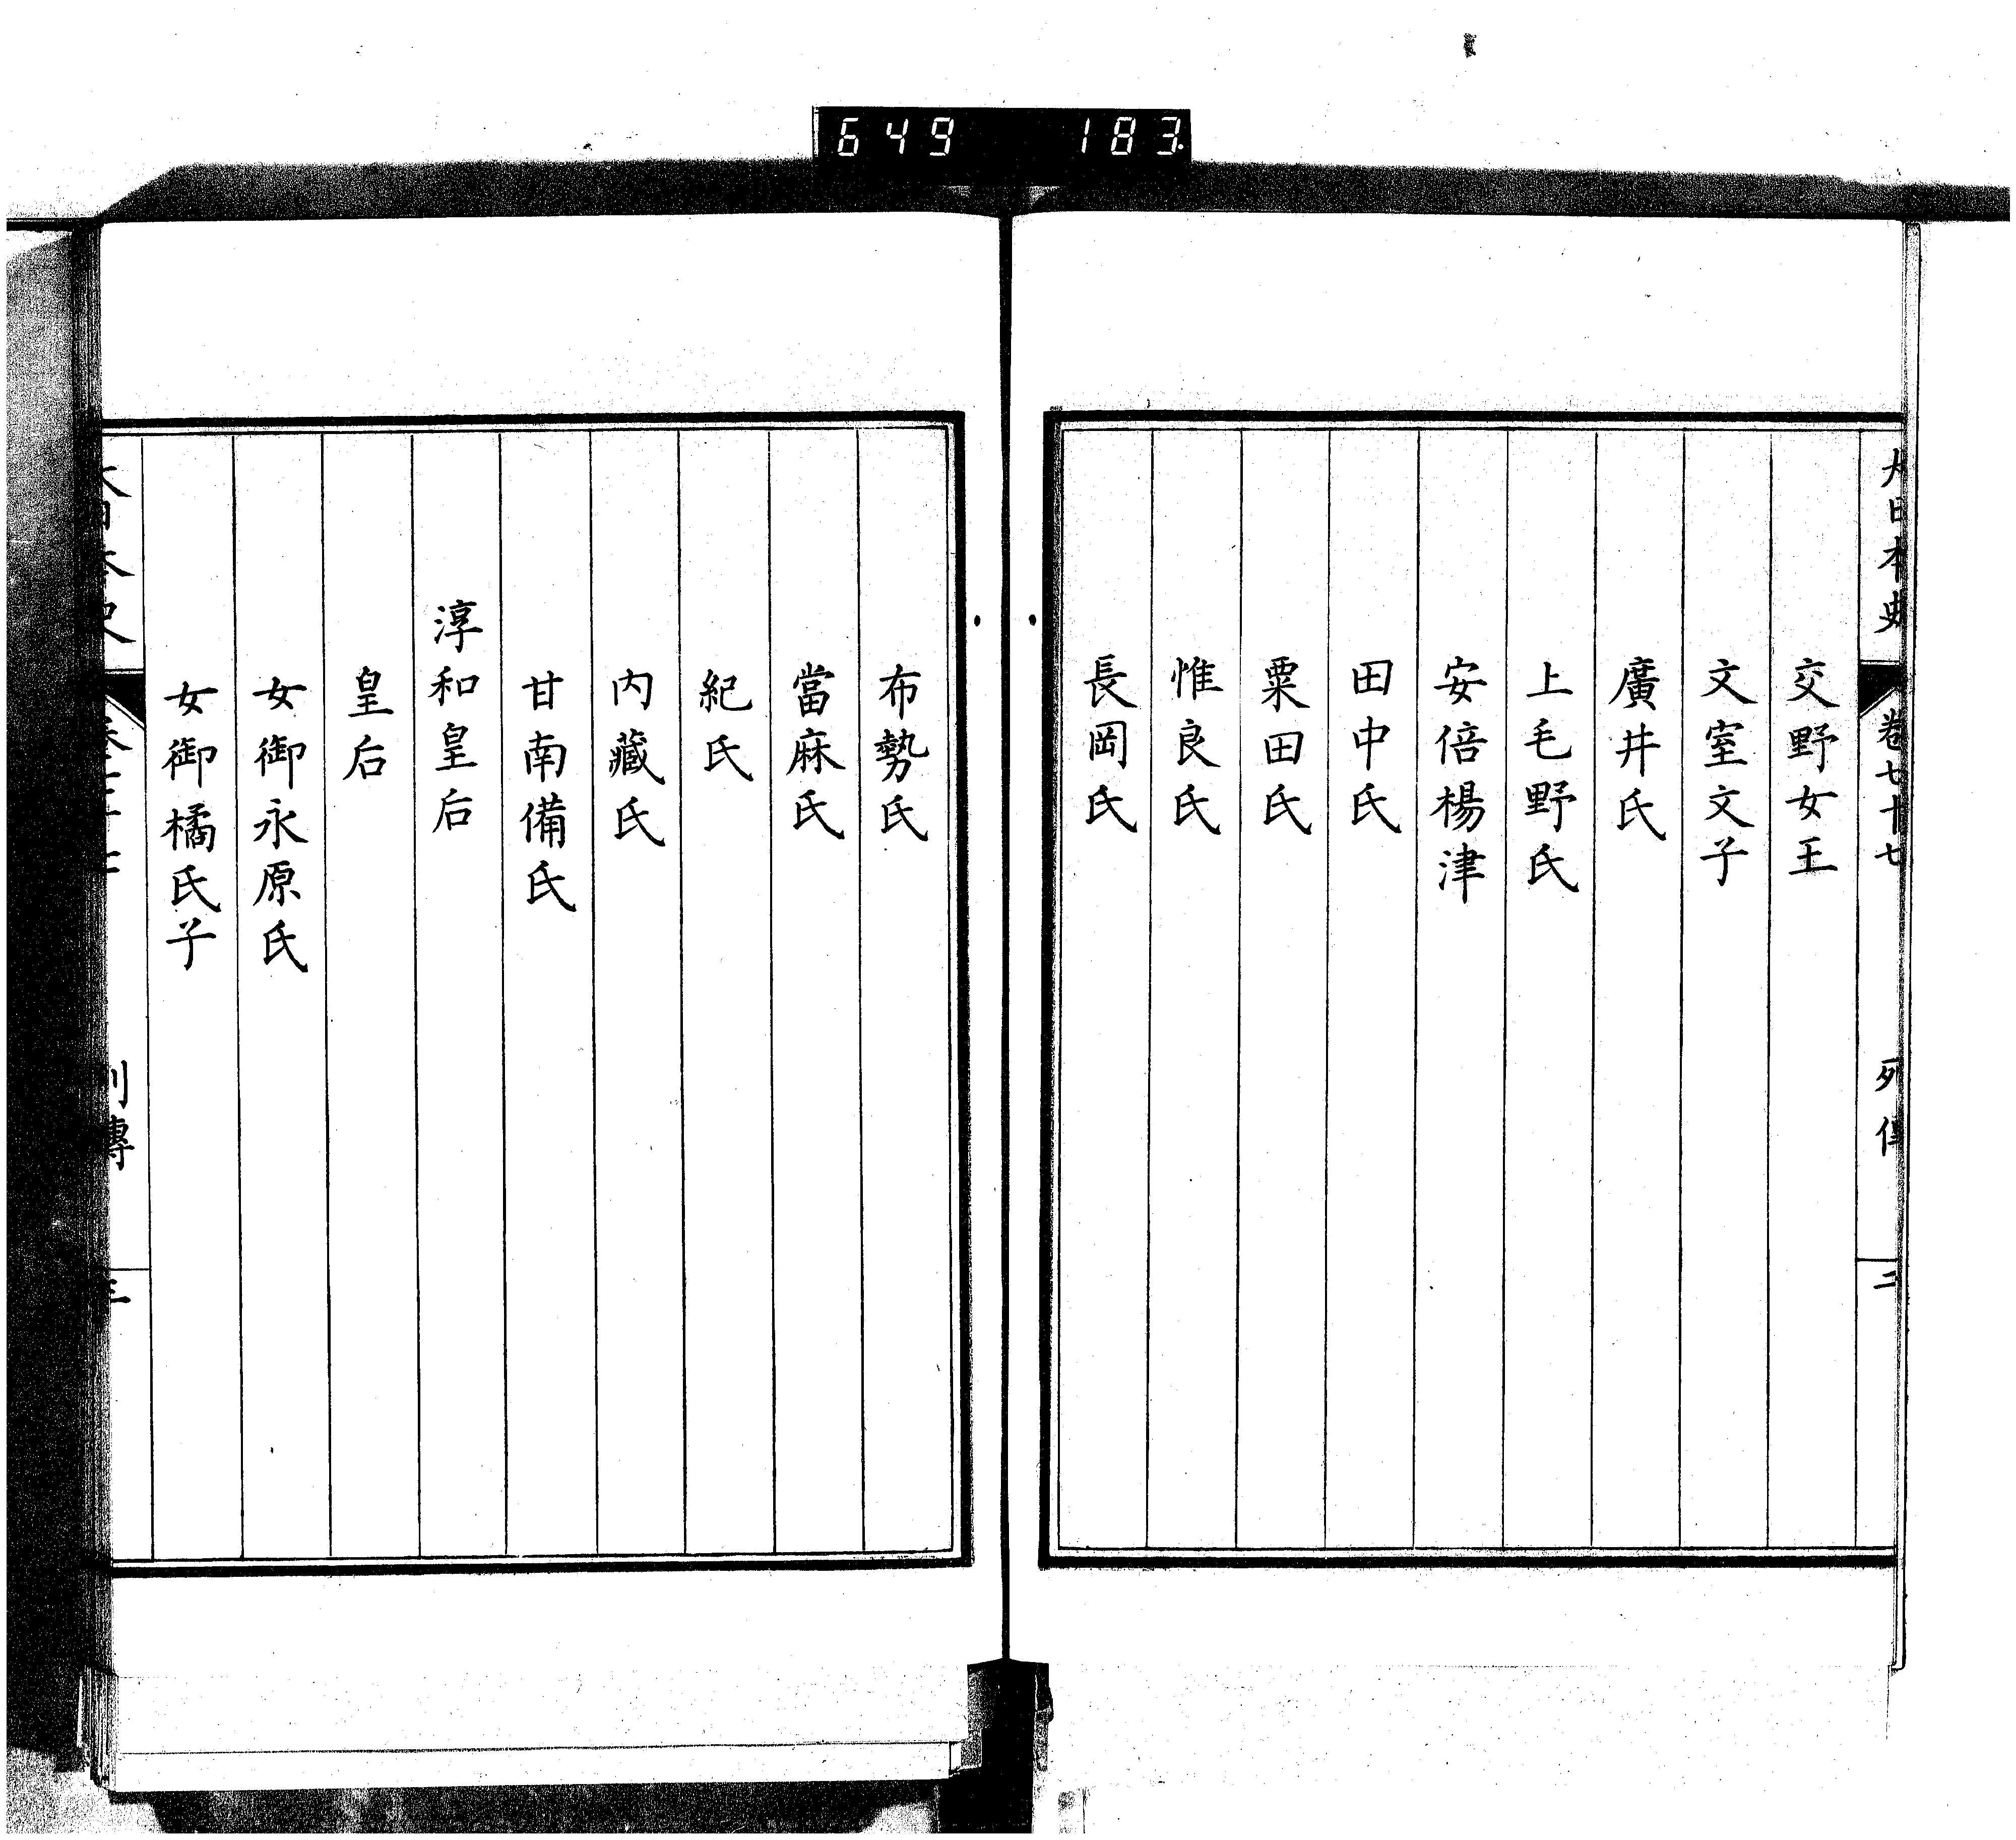 649 183
大日本史 卷七十七 列傳 二
交野女王
文室文子
廣井氏
上毛野氏
安倍楊津
田中氏
粟田氏
惟良氏
長岡氏
布勢氏
當麻氏
紀氏
内藏氏
甘南備氏
淳和皇后
皇后
女御永原氏
女御橘氏子
大日本史 卷七十七 列傳 三